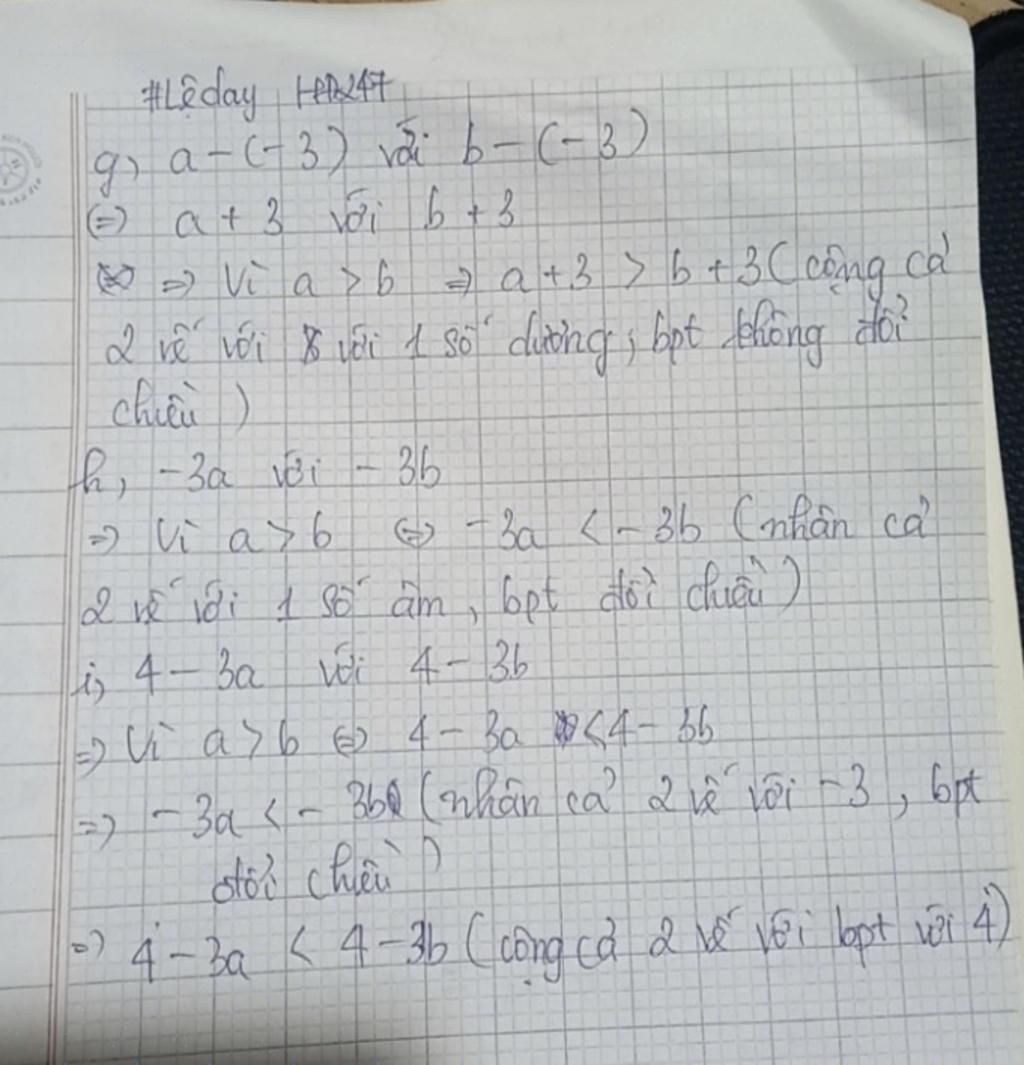 #Lệday
g, a - (-3) với b - (-3)
(=) a + 3 với b + 3
=) Vì a > b =) a + 3 > b + 3 ( cộng cả
2 vế với với 1 số dương, bpt không đổi
chiều )
h, -3a với - 3b
=) Vì a > b (=) -3a < - 3b ( nhân cả
2 vế với 1 số âm, bpt đổi chiều )
i, 4 - 3a với 4 - 3b
=) Vì a > b (=) 4 - 3a < 4 - 3b
=) -3a < - 3b ( nhân cả 2 vế với -3 , bpt
đổi chiều )
=) 4 - 3a < 4 - 3b ( cộng cả 2 vế với bpt với 4 )